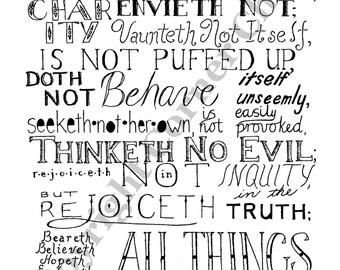 CHAR ENVIETH NOT;
ITY Vaunteth Not Itself,
IS NOT PUFFED UP,
DOTH NOT Behave itself unseemly,
seeketh·not·her·own, is not easily provoked,
THINKETH NO EVIL;
r·e·j·o·i·c·e·t·h NOT in INQUITY,
BUT REJOICETH in the TRUTH;
Beareth
Believeth
Hopeth
ALL THINGS